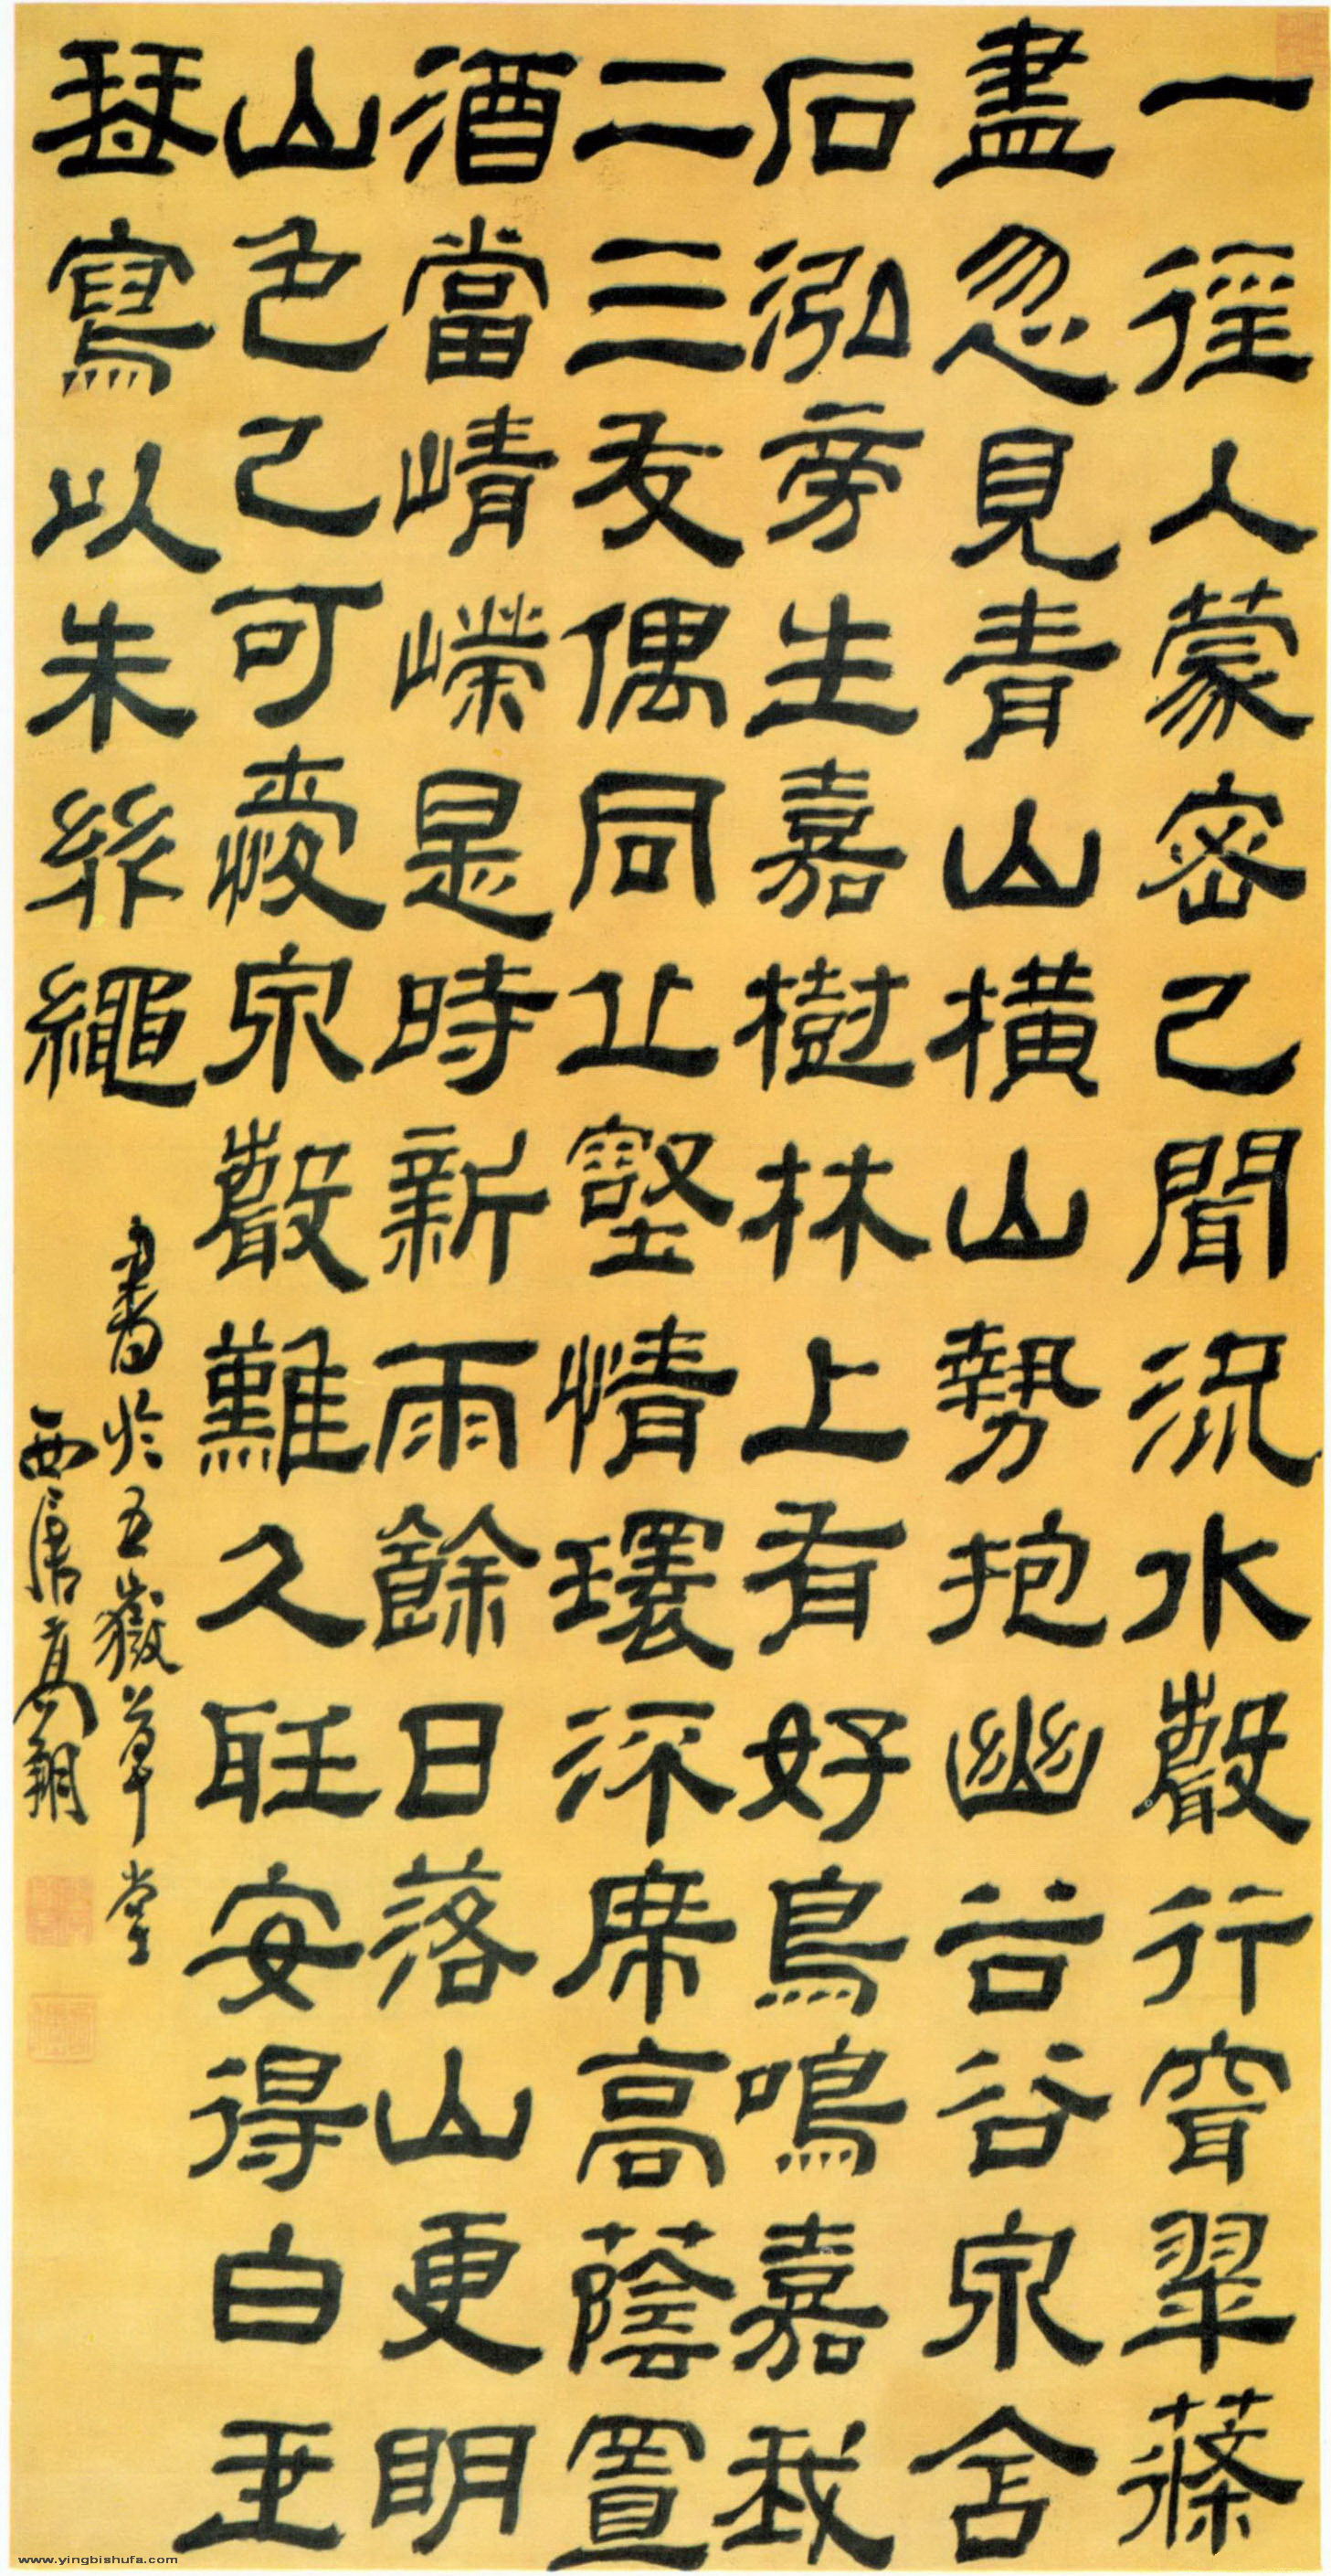 一徑入蒙密已聞流水聲行穿翠蓧
盡忽見青山橫山勢抱幽谷谷泉舍
石泓旁生嘉樹林上有好鳥鳴嘉我
二三友偶同丘壑情環深席高蔭置
酒當崝嶸是時新雨餘日落山更明
山色已可愛泉聲難久聽安得白玉
琴寫以朱絲繩
書於五嶽草堂
西唐高翔
www.yingbishufa.com